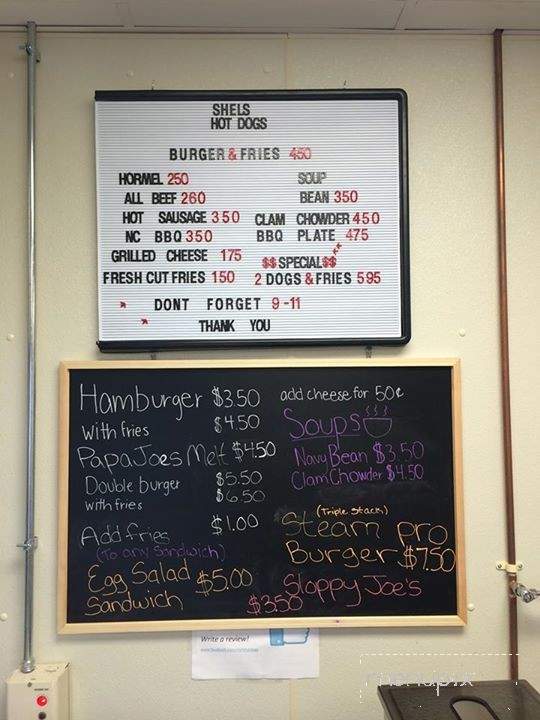 SHELS
HOT DOGS
BURGER & FRIES 450
HORMEL 250
ALL BEEF 260
HOT SAUSAGE 350
NC BBQ 350
GRILLED CHEESE 175
FRESH CUT FRIES 150
SOUP
BEAN 350
CLAM CHOWDER 450
BBQ PLATE 475
$$ SPECIAL $$
2 DOGS & FRIES 595
DONT FORGET 9-11
THANK YOU
Hamburger $3.50
With fries $4.50
Papa Joes Melt $4.50
Double burger $5.50
with fries $6.50
Add fries $1.00
(to any sandwich)
Egg Salad $5.00
Sandwich
add cheese for 50¢
Soups
Navy Bean $3.50
Clam Chowder $4.50
(Triple Stack)
Steam pro
Burger $7.50
Sloppy Joe's
$3.50
Write a review!